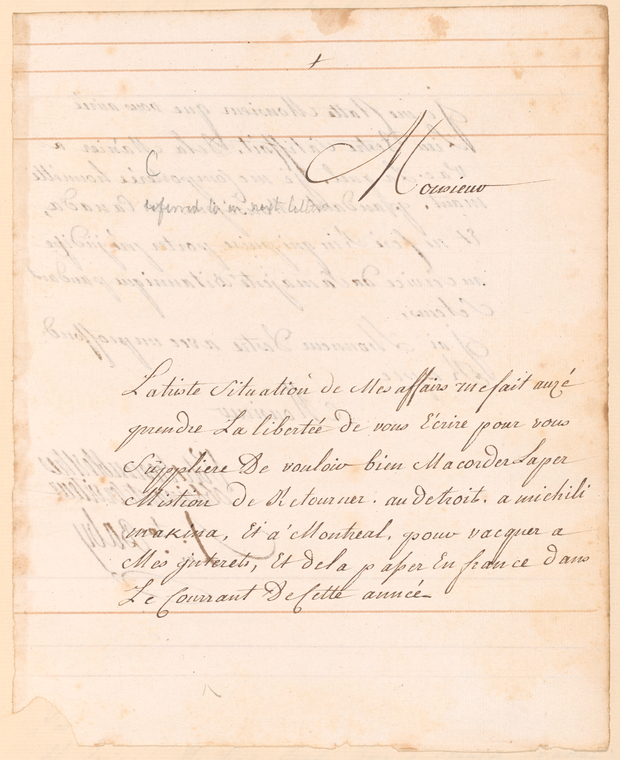 C
Monsieur
referred to in next letter
La triste Situation de Mes affairs me fait auzé
prendre La libertée de vous Ecrire pour vous
Suppliere De vouloir bien Macorder Laper
Mistion de Retourner. au detroit. a michili
makina, Et a Montreal, pour vacquer a
Mes jnterets, Et dela passer En france dans
Le Courrant De Cette année